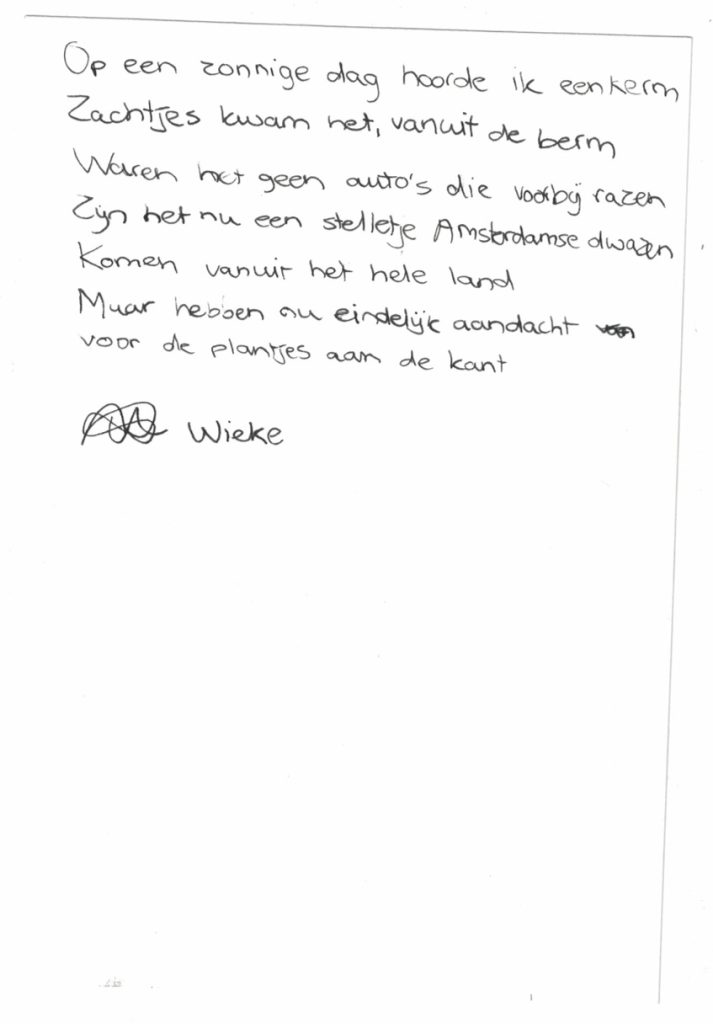 Op een zonnige dag hoorde ik een kerm
Zachtjes kwam het, vanuit de berm
Waren het geen auto's die voorbij razen
Zijn het nu een stelletje Amsterdamse dwazen
Komen vanuit het hele land
Maar hebben nu eindelijk aandacht
voor de plantjes aan de kant
Wieke